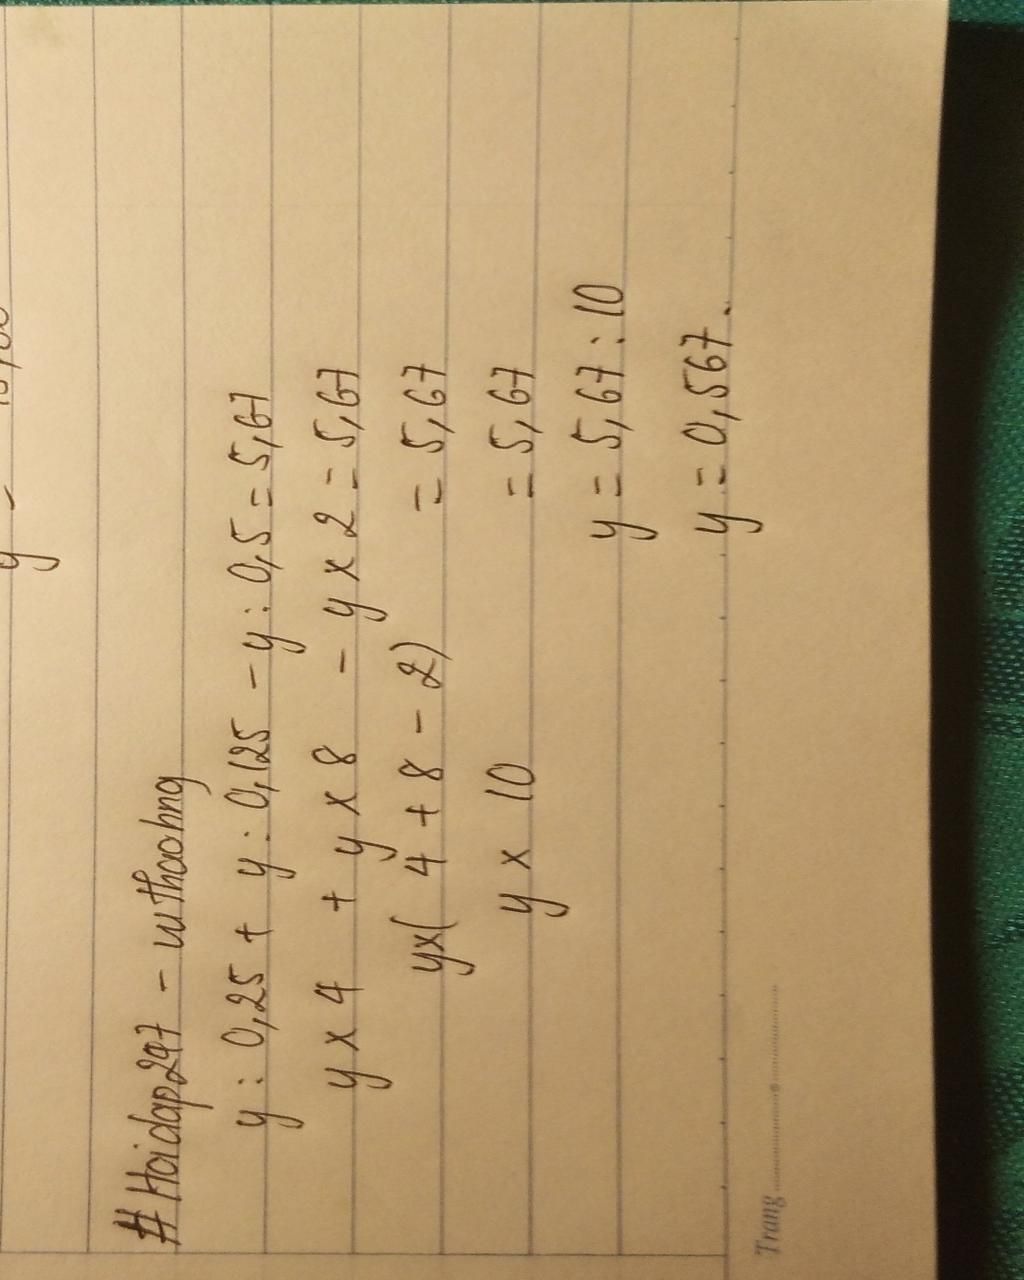 # Hoidap247 - wthaohng
y : 0,25 + y : 0,125 - y : 0,5 = 5,67
y x 4 + y x 8 - y x 2 = 5,67
yx( 4 + 8 - 2) = 5,67
y x 10 = 5,67
y = 5,67 : 10
y = 0,567.
Trang